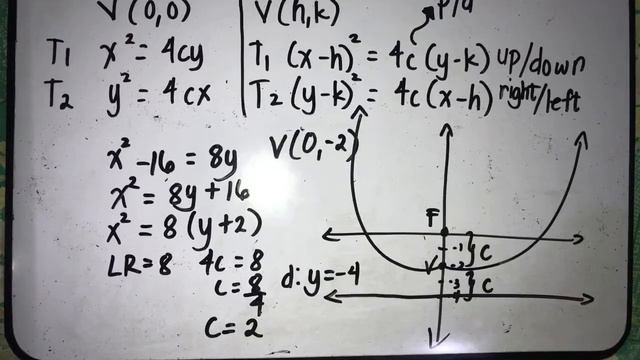 V(0,0)
V(h,k)
p/a
T1 x² = 4cy
T1 (x-h)² = 4c(y-k) up/down
T2 y² = 4cx
T2 (y-k)² = 4c(x-h) right/left
x² -16 = 8y
V(0,-2)
x² = 8y+16
x² = 8(y+2)
LR=8 4c=8
c=8/4
c=2
d:y=-4
F
-1
C
V
-2
-3
C
-4